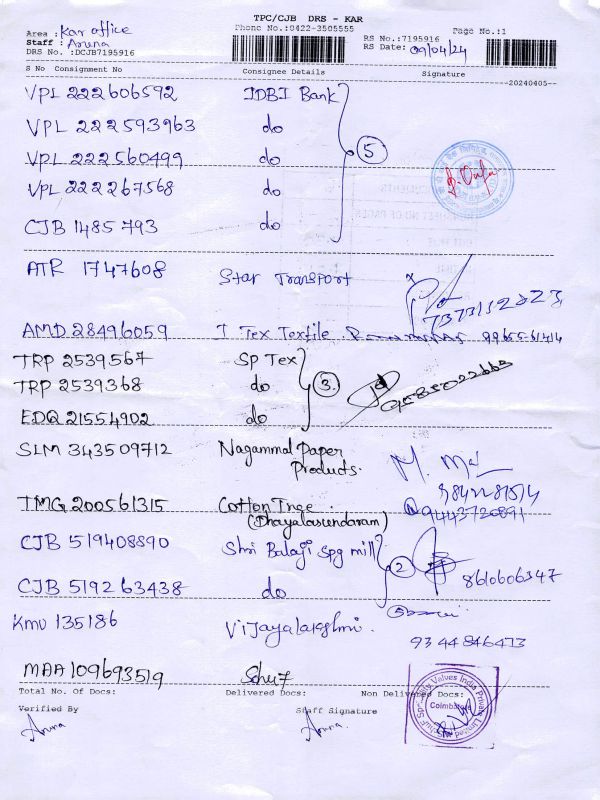 TPC/CJB DRS - KAR
Phone No.:0422-3505555
Area : Kar office
Staff : Aruna
DRS No. :DCJB7195916
RS No.:7195916
RS Date: 09/04/24
Page No.:1
S No Consignment No Consignee Details Signature
20240405
VPL 222606592 IDBI Bank
VPL 222593963 do
VPL 222560499 do
VPL 222267568 do
CJB 1485793 do
5
ATR 1747608 Star Transport
7373112223
AMD 28496059 I Tex Textile 99655-61414
TRP 2539567 SP Tex
TRP 2539368 do
EDQ 21554902 do
3
9585022663
SLM 343509712 Nagammal Paper
Products.
TMG 200561315 Cotton Inge
(Dhayalasundaram)
9443720891
CJB 519408890 Shri Balaji Spg mill
CJB 519263438 do
2
8610606347
KMU 135186 Vijayalakshmi.
9344846473
MAA 109693519 Schuf
Total No. Of Docs: Delivered Docs: Non Delivered Docs:
Verified By Staff Signature
Aruna Aruna.
Valves India Private Limited
Coimbatore